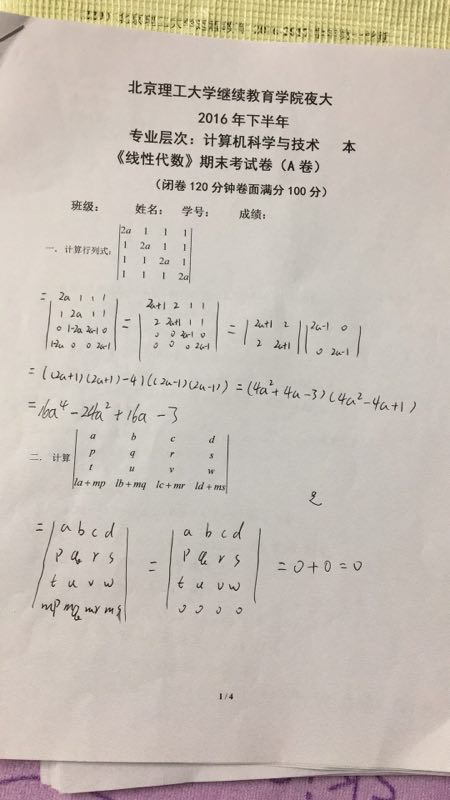 北京理工大学继续教育学院夜大
2016年下半年
专业层次：计算机科学与技术 本
《线性代数》期末考试卷（A卷）
（闭卷120分钟卷面满分100分）
班级： 姓名： 学号： 成绩：
一．计算行列式：
2a 1 1 1
1 2a 1 1
1 1 2a 1
1 1 1 2a
= | 2a 1 1 1 | = | 2a+1 2 1 1 | = | 2a+1 2 | | 2a-1 0 |
| 1 2a 1 1 | | 2 2a+1 1 1 | | 2 2a+1 | | 0 2a-1 |
| 0 1-2a 2a-1 0 | | 0 0 2a-1 0 |
| 1-2a 0 0 2a-1 | | 0 0 0 2a-1 |
= ((2a+1)(2a+1)-4)((2a-1)(2a-1)) = (4a²+4a-3)(4a²-4a+1)
=16a⁴-24a²+16a-3
二．计算
a b c d
p q r s
t u v w
la+mp lb+mq lc+mr ld+ms
= | a b c d | = | a b c d | = 0+0=0
| p q r s | | p q r s |
| t u v w | | t u v w |
| mp mq mr ms | | 0 0 0 0 |
1 / 4